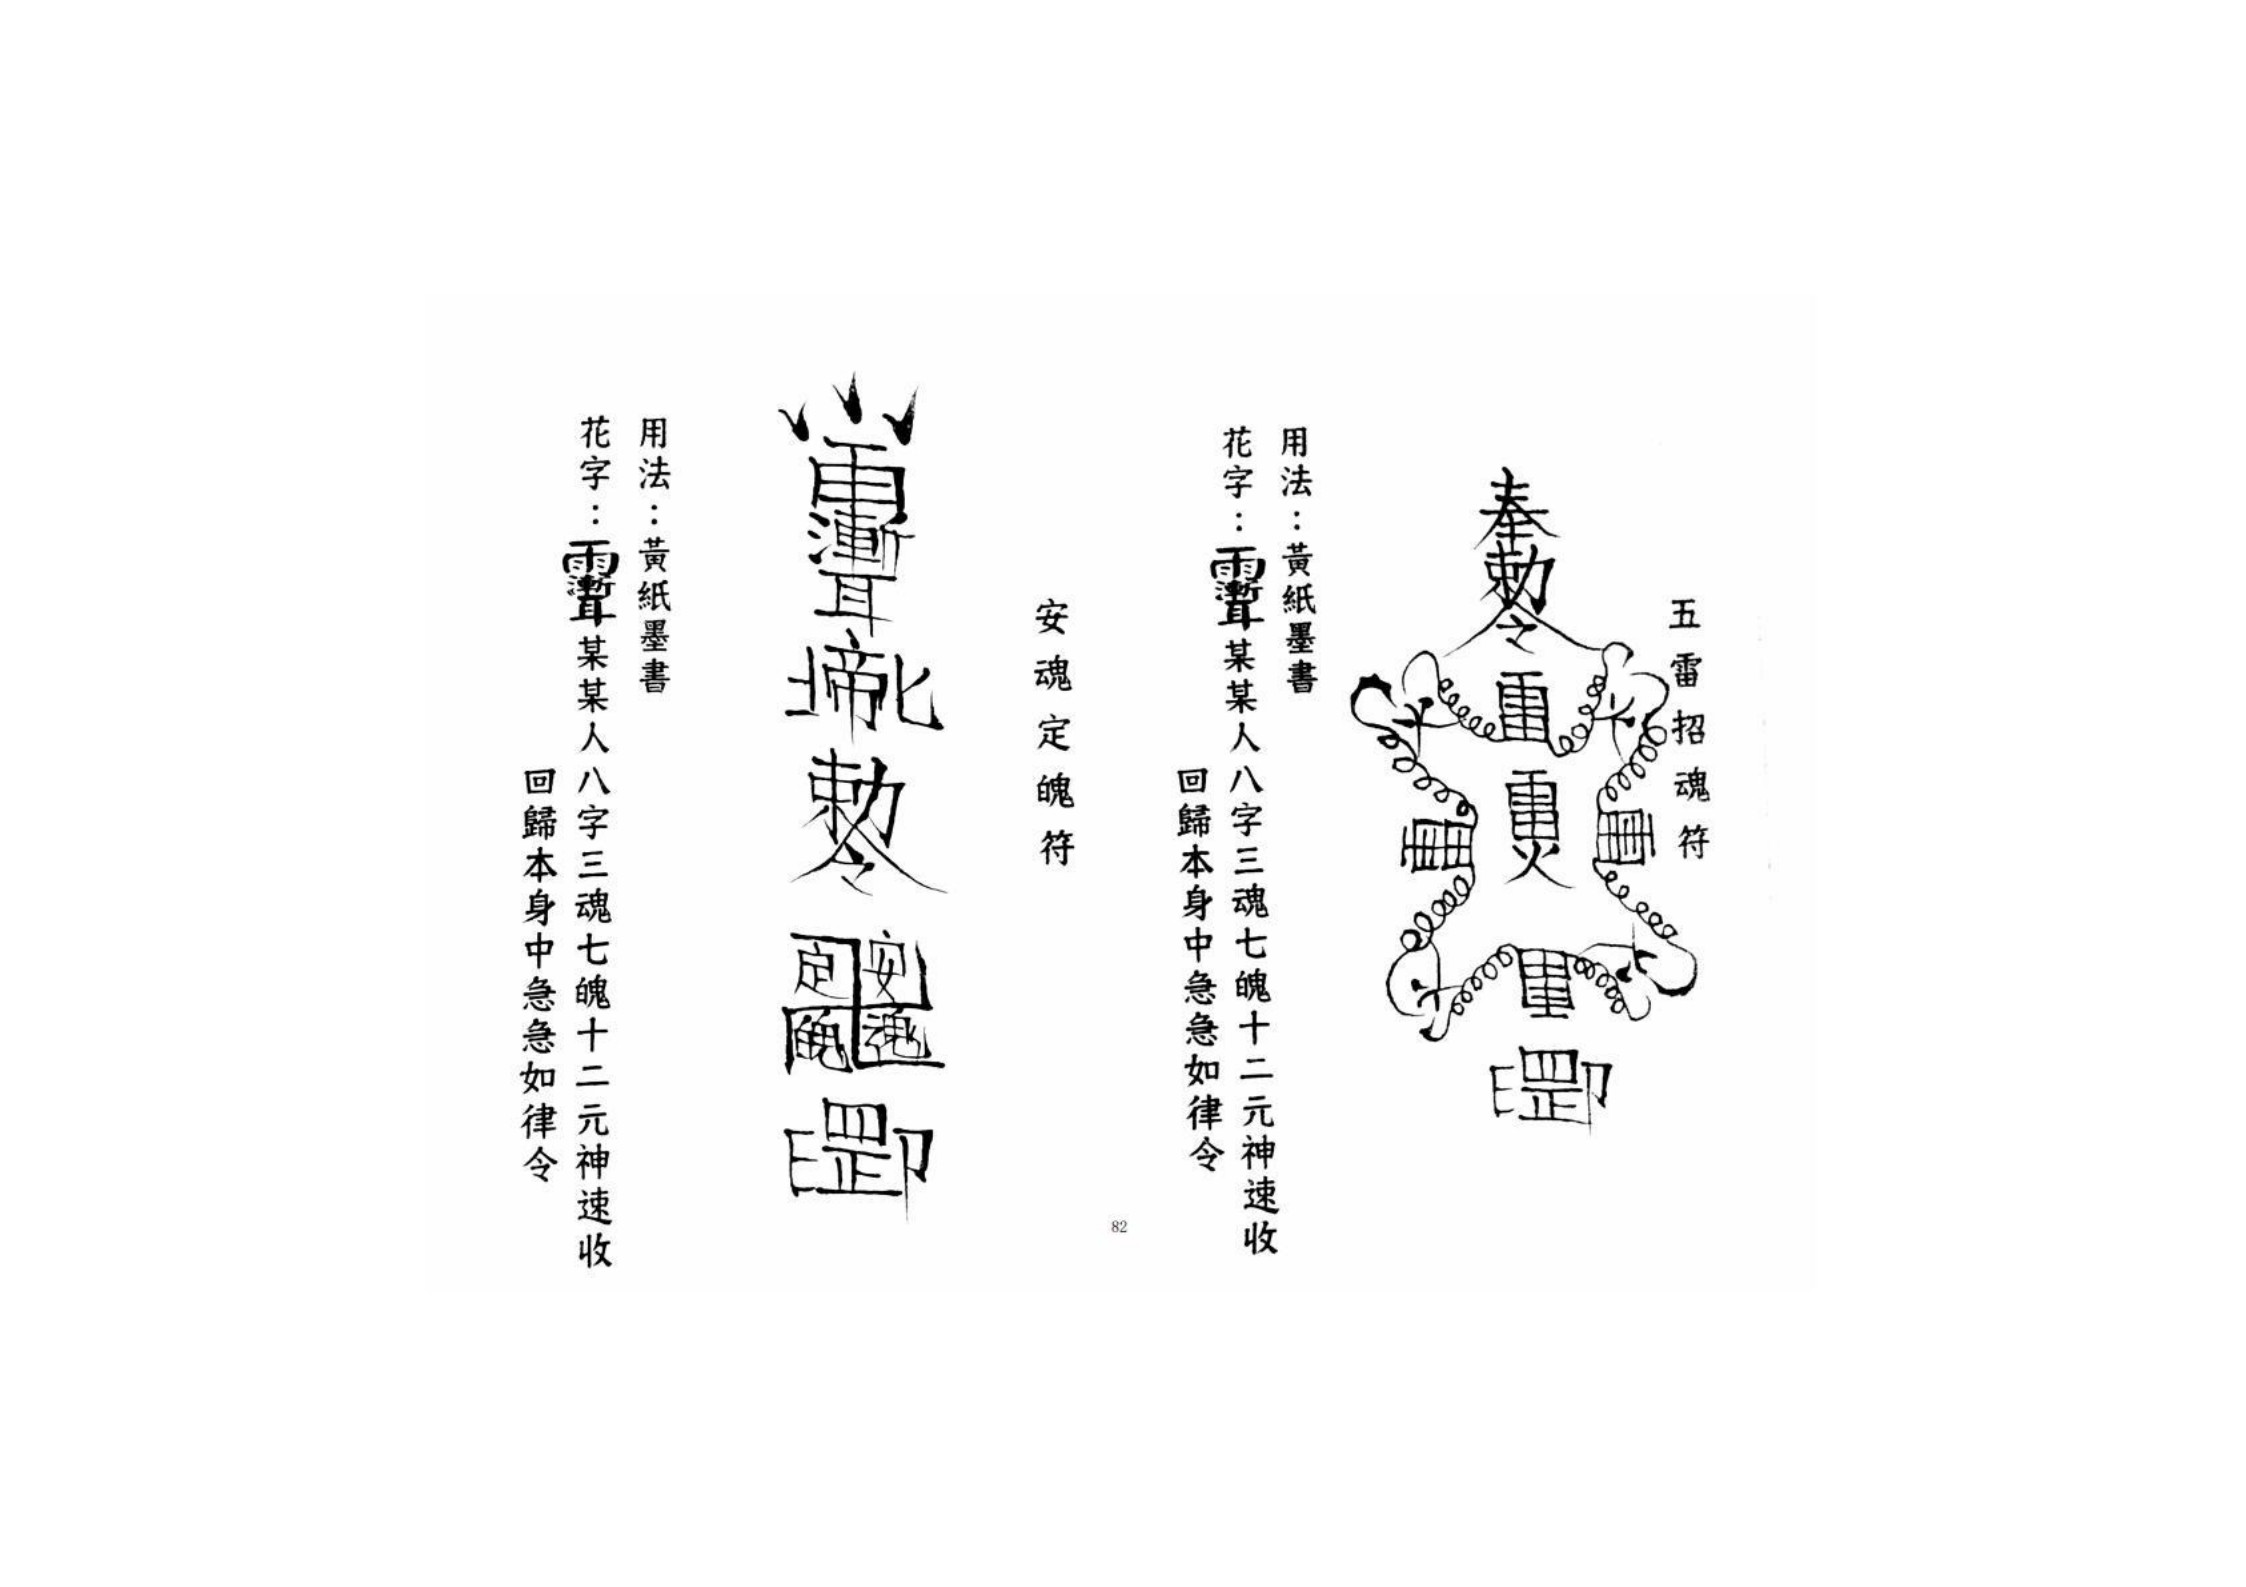 五雷招魂符
奉
勅令
雷
雷火
雷
雷
雷
罡印
用法：黃紙墨書
花字：某某人八字三魂七魄十二元神速收
回歸本身中急急如律令
安魂定魄符
勅令
安魂
定魄
罡印
用法：黃紙墨書
花字：某某人八字三魂七魄十二元神速收
回歸本身中急急如律令
82